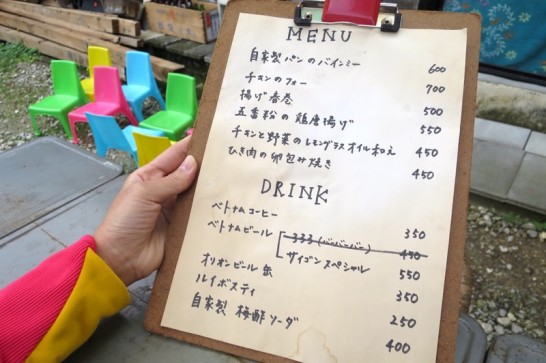 MENU
自家製パンのバインミー 600
チキンのフォー 700
揚げ春巻 500
五番松の鶏唐揚げ 550
チキンと野菜のレモングラスオイル和え 450
ひき肉の卵包み焼き 450
DRINK
ベトナムコーヒー 350
ベトナムビール 333(バーバーバー) 450
サイゴンスペシャル 550
オリオンビール缶 350
ルイボスティ 250
自家製 梅酢ソーダ 400